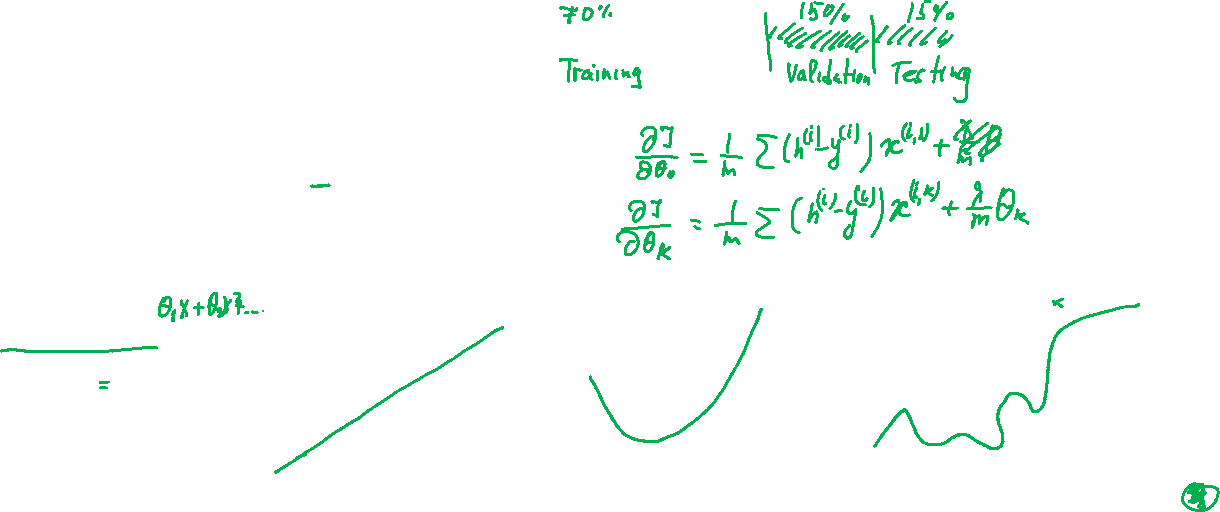 70% 15% 15%
Training Validation Testing
∂J/∂θ₀ = 1/m Σ (h⁽ⁱ⁾ - y⁽ⁱ⁾) x⁽ⁱ,¹⁾ +
∂J/∂θₖ = 1/m Σ (h⁽ⁱ⁾ - y⁽ⁱ⁾) x⁽ⁱ,ᵏ⁾ + λ/m θₖ
θ₁x + θ₂x² ...
=
x